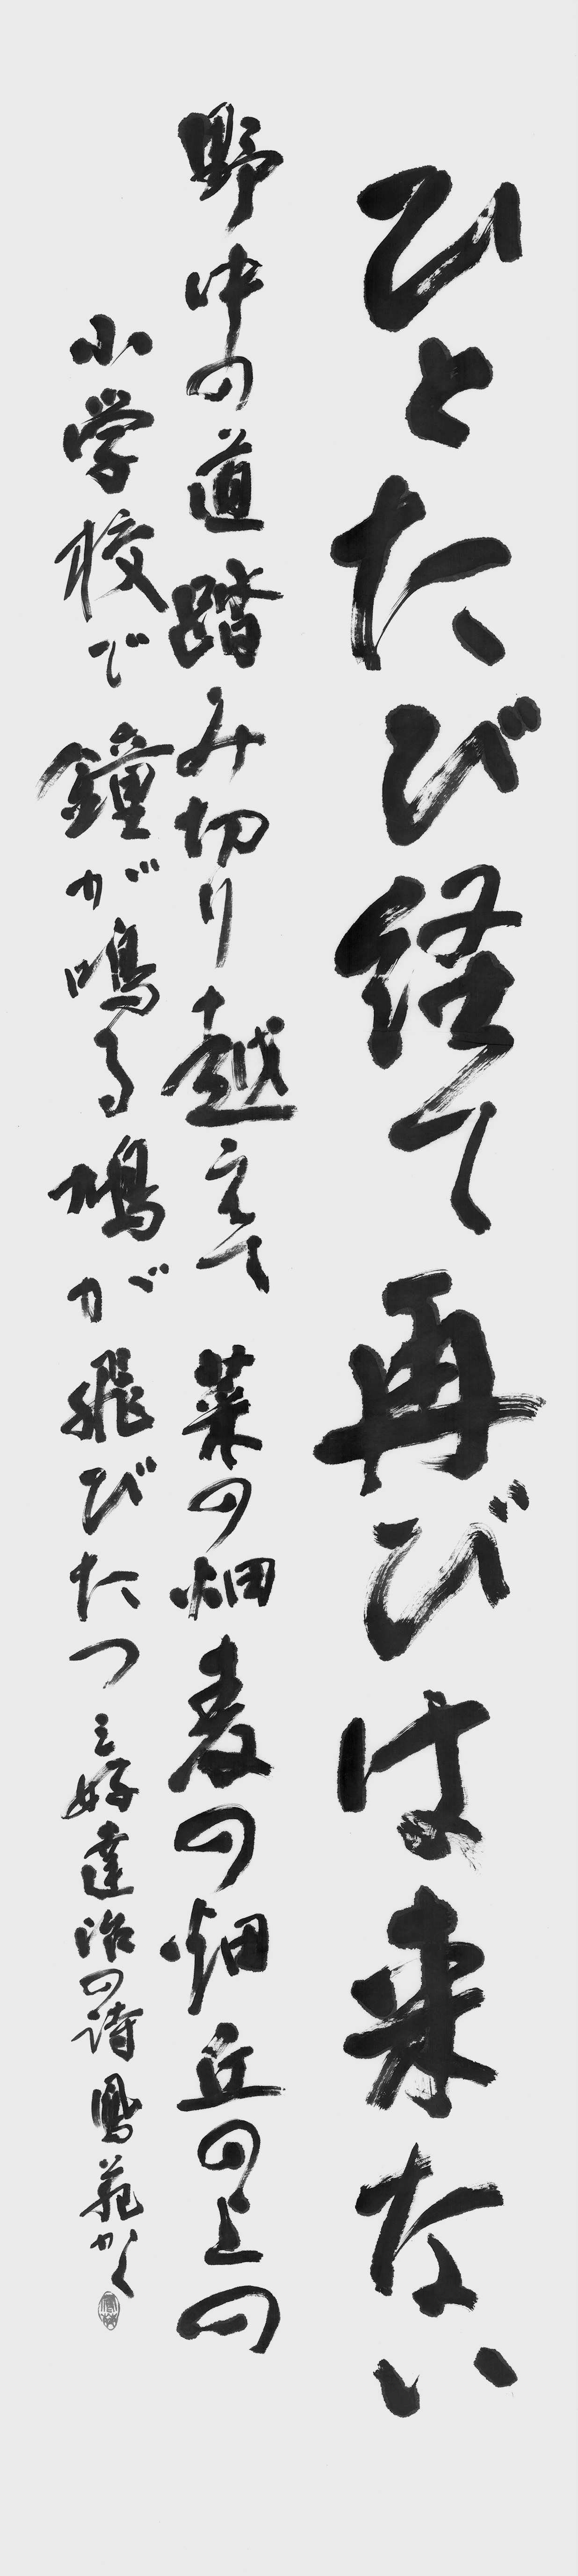 ひとたび経て再びは来ない
野中の道踏み切り越えて菜の畑麦の畑丘の上の
小学校で鐘が鳴る鳩が飛びたつ三好達治の詩鳳苑かく